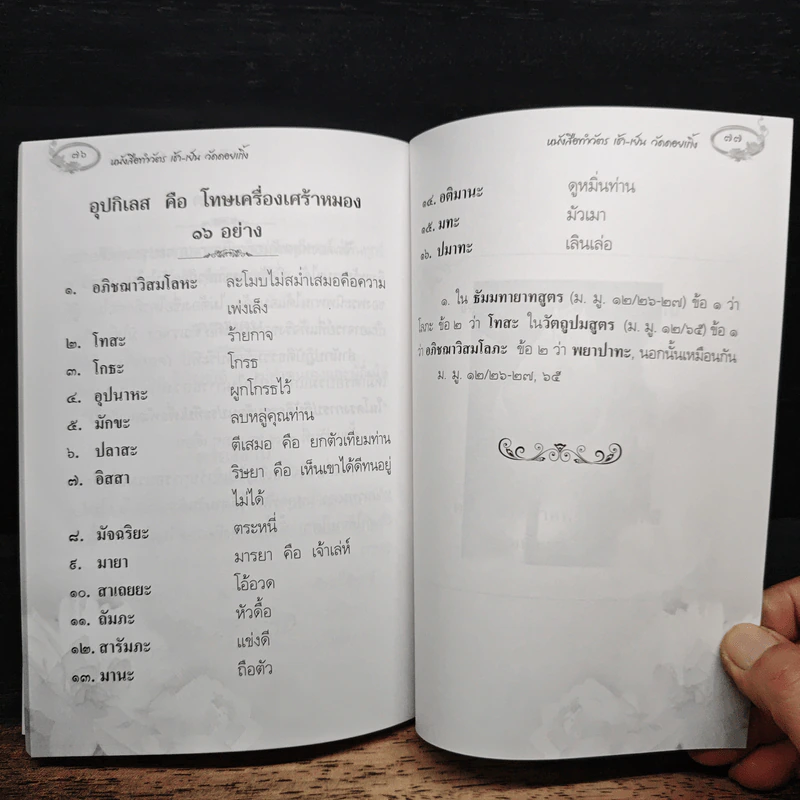 ๗๖
หนังสือทำวัตร เช้า-เย็น วัดดอยเกิ้ง
อุปกิเลส คือ โทษเครื่องเศร้าหมอง
๑๖ อย่าง
๑. อภิชฌาวิสมโลหะ ละโมบไม่สม่ำเสมอคือความ
เพ่งเล็ง
๒. โทสะ ร้ายกาจ
๓. โกธะ โกรธ
๔. อุปนาหะ ผูกโกรธไว้
๕. มักขะ ลบหลู่คุณท่าน
๖. ปลาสะ ตีเสมอ คือ ยกตัวเทียมท่าน
๗. อิสสา ริษยา คือ เห็นเขาได้ดีทนอยู่
ไม่ได้
๘. มัจฉริยะ ตระหนี่
๙. มายา มารยา คือ เจ้าเล่ห์
๑๐. สาเถยยะ โอ้อวด
๑๑. ถัมภะ หัวดื้อ
๑๒. สารัมภะ แข่งดี
๑๓. มานะ ถือตัว
หนังสือทำวัตร เช้า-เย็น วัดดอยเกิ้ง
๗๗
๑๔. อติมานะ ดูหมิ่นท่าน
๑๕. มทะ มัวเมา
๑๖. ปมาทะ เลินเล่อ
๑. ใน ธัมมทายาทสูตร (ม. มู. ๑๒/๒๖-๒๗) ข้อ ๑ ว่า
โลภะ ข้อ ๒ ว่า โทสะ ในวัตถูปมสูตร (ม. มู. ๑๒/๖๕) ข้อ ๑
ว่า อภิชฌาวิสมโลภะ ข้อ ๒ ว่า พยาปาทะ, นอกนั้นเหมือนกัน
ม. มู. ๑๒/๒๖-๒๗, ๖๕